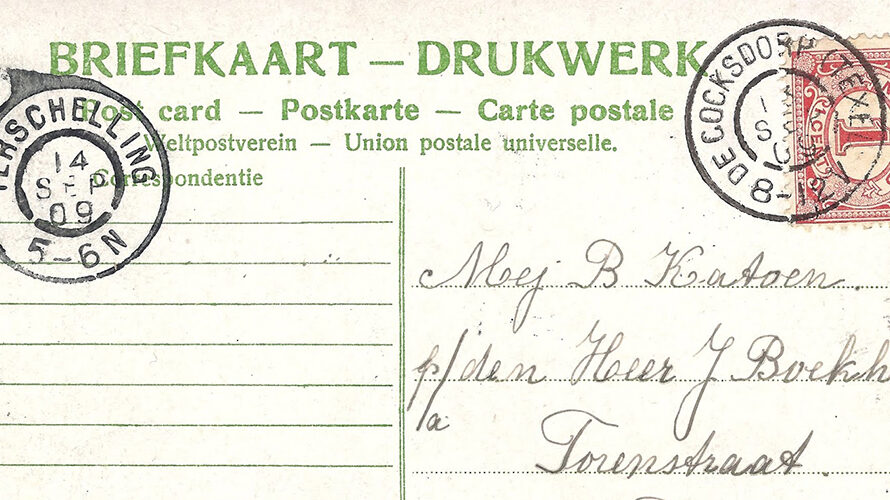 BRIEFKAART — DRUKWERK
Post card — Postkarte — Carte postale
Weltpostverein — Union postale universelle.
Correspondentie
TERSCHELLING
14
SEP
09
5-6N
DE COCKSDORP (TEXEL)
8-12
CENT
1
Mej B Katoen.
p/a den Heer J Boekh
Torenstraat.